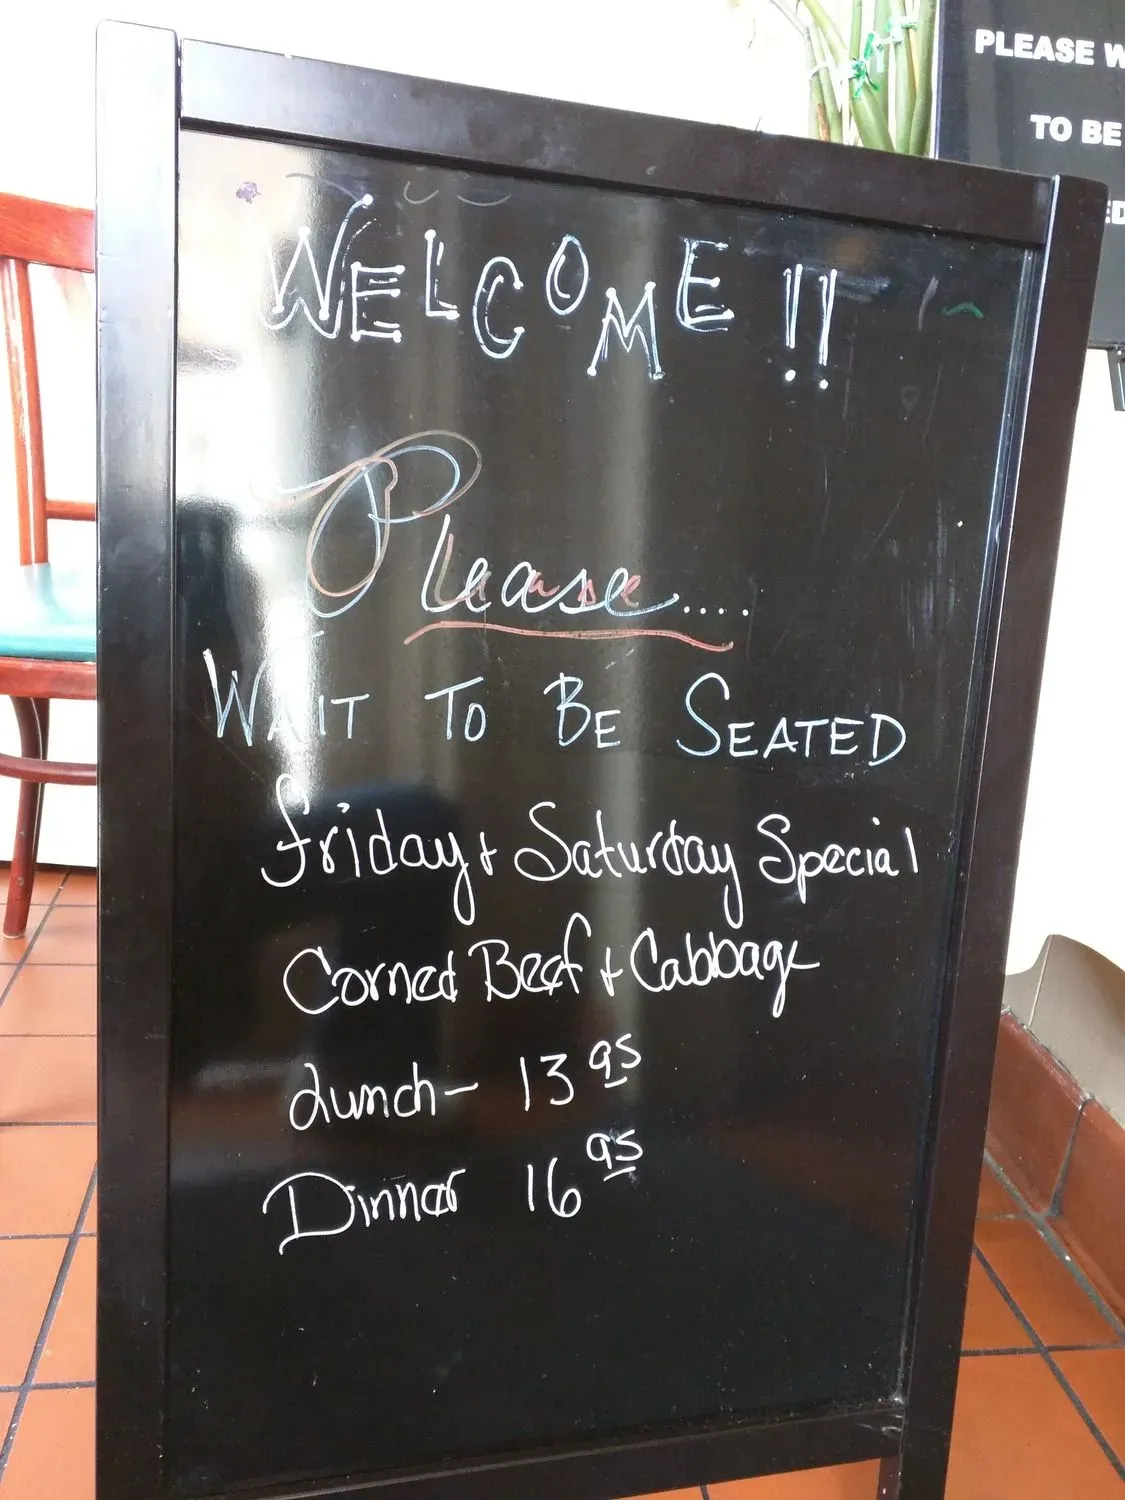 WELCOME !!
Please....
WAIT TO BE SEATED
Friday + Saturday Special
Corned Beef + Cabbage
Lunch - 13 95
Dinner 16 95
PLEASE W
TO BE
ED